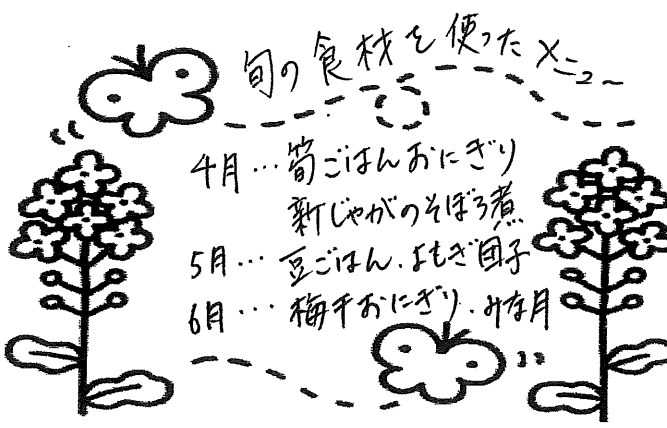 旬の食材を使ったメニュー
4月…筍ごはんおにぎり
新じゃがのそぼろ煮
5月…豆ごはん.よもぎ団子
6月…梅干おにぎり.みな月